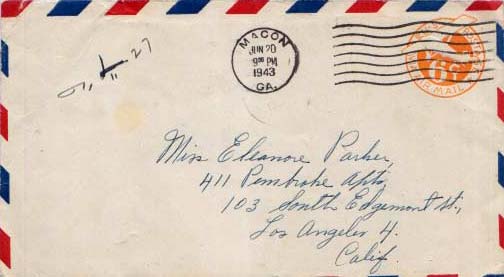 MACON
JUN 20
9 30 PM
1943
GA.
6¢
AIR MAIL
Miss Eleanore Parker,
411 Pembroke Apts,
103 South Edgemont St.,
Los Angeles 4.
Calif.